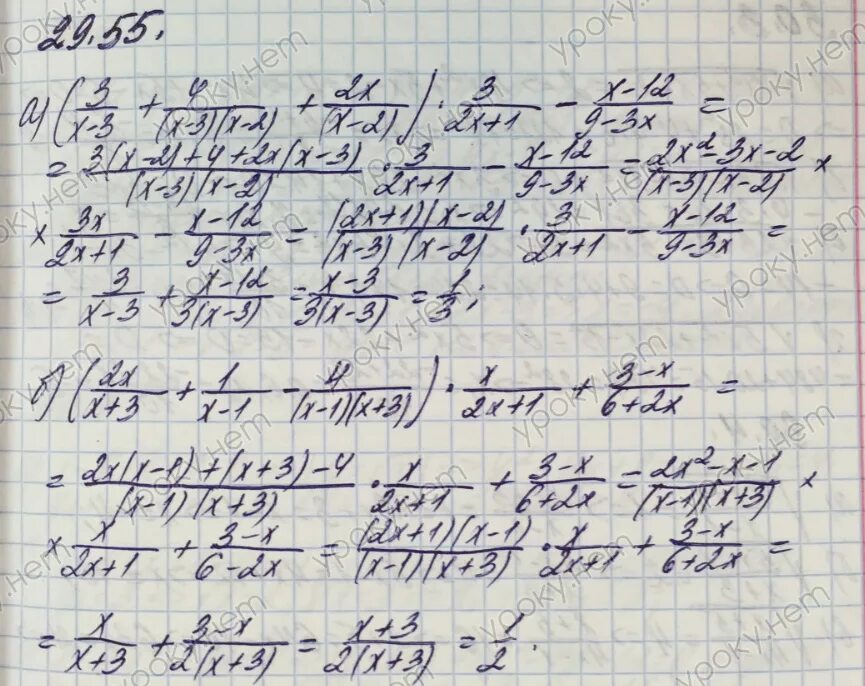 29.55.
а) (3/(x-3) + 4/((x-3)(x-2)) + 2x/(x-2)) · 3/(2x+1) - (x-12)/(9-3x) =
= (3(x-2)+4+2x(x-3))/((x-3)(x-2)) · 3/(2x+1) - (x-12)/(9-3x) = (2x²-3x-2)/((x-3)(x-2)) ×
× 3x/(2x+1) - (x-12)/(9-3x) = ((2x+1)(x-2))/((x-3)(x-2)) · 3/(2x+1) - (x-12)/(9-3x) =
= 3/(x-3) + (x-12)/(3(x-3)) = (x-3)/(3(x-3)) = 1/3;
б) (2x/(x+3) + 1/(x-1) - 4/((x-1)(x+3))) · x/(2x+1) + (3-x)/(6+2x) =
= (2x(x-1)+(x+3)-4)/((x-1)(x+3)) · x/(2x+1) + (3-x)/(6+2x) = (2x²-x-1)/((x-1)(x+3)) ×
× x/(2x+1) + (3-x)/(6-2x) = ((2x+1)(x-1))/((x-1)(x+3)) · x/(2x+1) + (3-x)/(6+2x) =
= x/(x+3) + (3-x)/(2(x+3)) = (x+3)/(2(x+3)) = 1/2.
уроку.нет